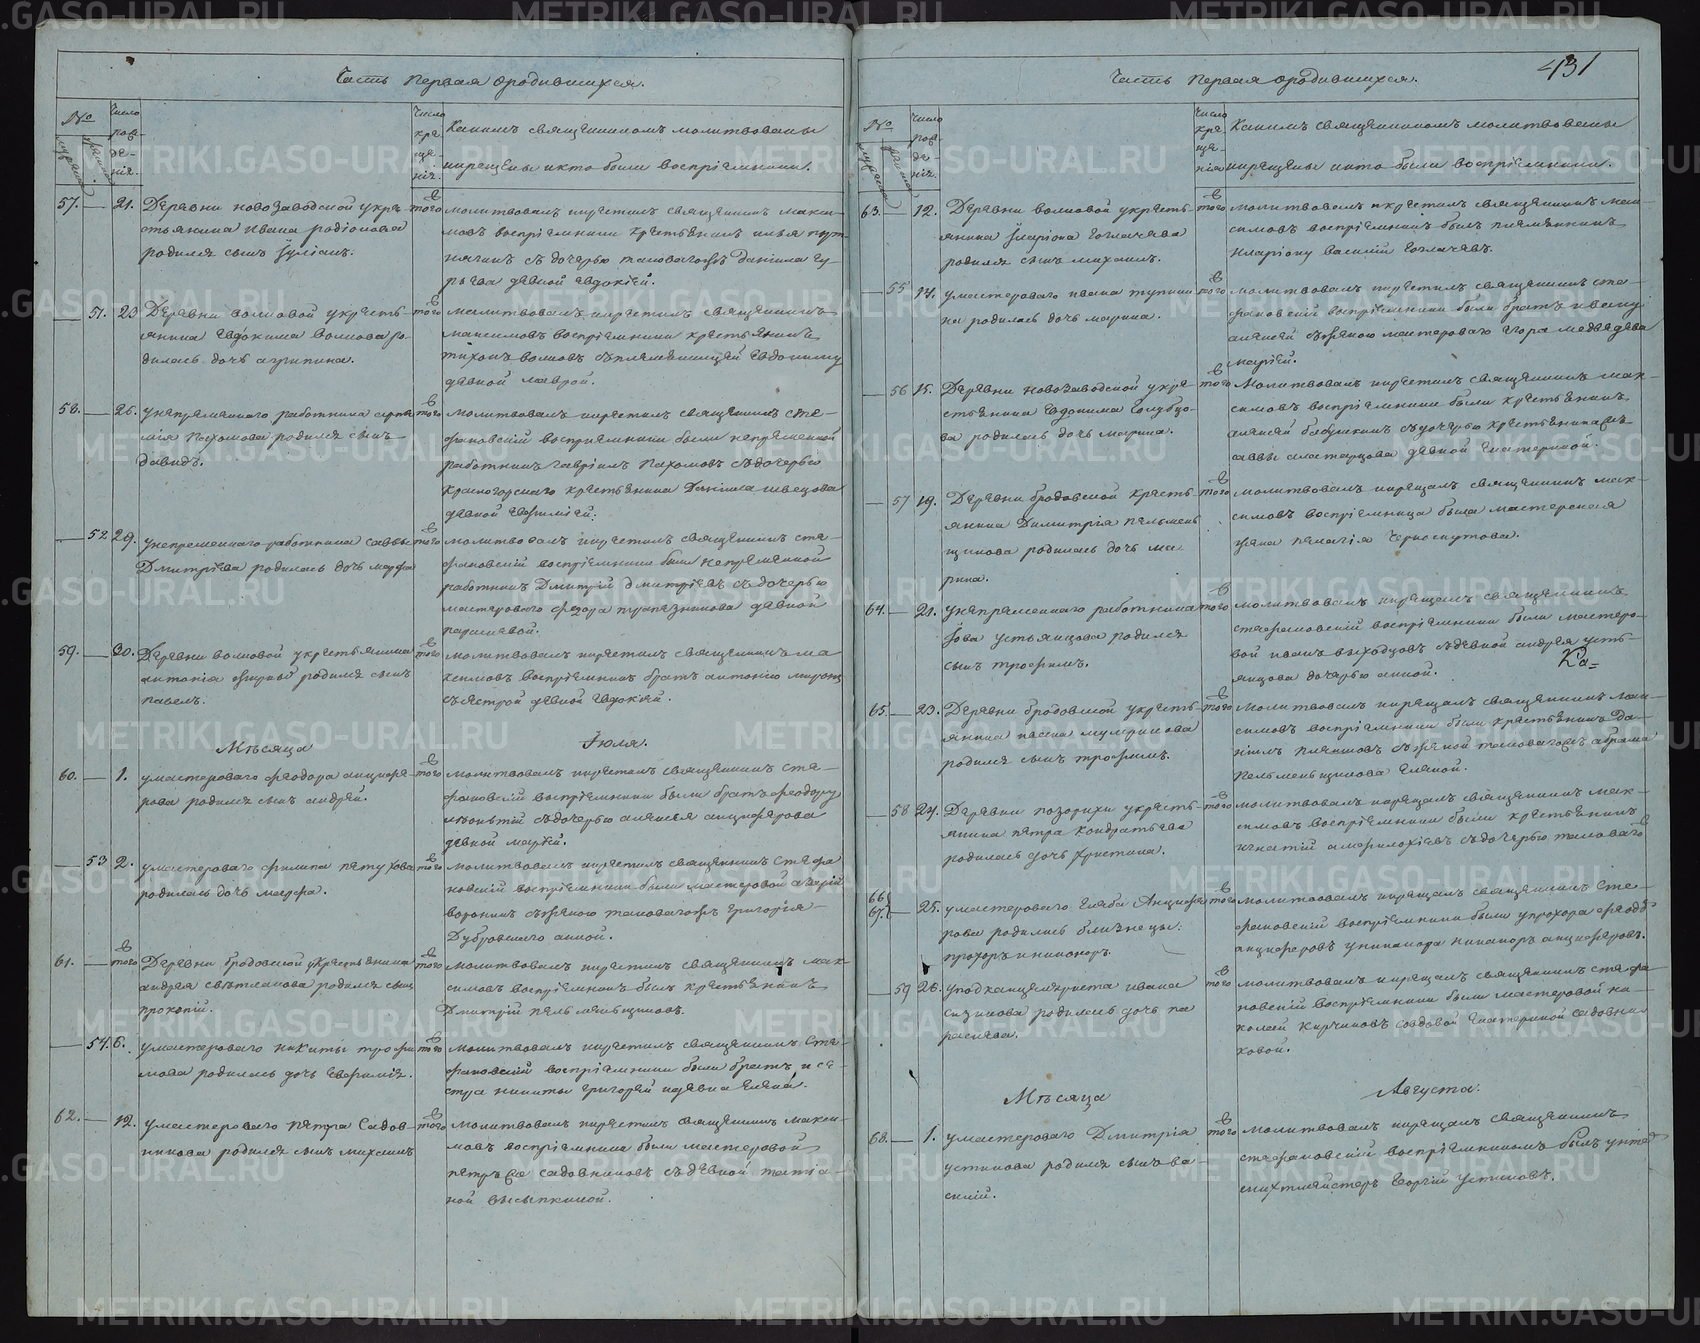 Часть первая о родившихся.
№
Число рождения.
Число крещения.
Какимъ священникомъ молитвованы
и крещены и кто были воспріемники.
57. — 21. Деревни новозаводской у крестьянина Ивана родіонова
родился сынъ Іуліанъ.
въ того молитвовалъ и крестилъ священникъ максимовъ воспріемники
съ дочерью таковагожъ Даніила Гурьева девкой Евдокіей.
— 51. 23 Деревни волковой у крестьянина Евдокима Волкова родилась дочь агрипина.
въ того молитвовалъ и крестилъ священникъ
максимовъ воспріемники крестьянинъ
тихонъ волковъ съ племянницей Евдокиму
девкой маврой.
58. — 26. у непременнаго работника
пахомова родился сынъ
давидъ.
въ того молитвовалъ и крестилъ священникъ Стефановскій воспріемники были непременной
работникъ гавріилъ пахомовъ съ дочерью
красногорскаго крестьянина Даніила швецова
девкой Евфиміей.
— 52 29. у непременнаго работника саввы
Дмитріева родилась дочь марфа
въ того молитвовалъ и крестилъ священникъ Стефановскій воспріемники были непременной
работникъ Дмитрій дмитріевъ съ дочерью
мастероваго федора девкой
парасковой.
59. — 30. Деревни волковой у крестьянина
антонія родился сынъ
павелъ.
въ того молитвовалъ и крестилъ священникъ максимовъ воспріемники братъ антонію миронъ
съ сестрой девкой Евдокіей.
Месяца Іюля.
60. — 1. у мастероваго феодора анцыферова родился сынъ андрей.
въ того молитвовалъ и крестилъ священникъ Стефановскій воспріемники были братъ феодору
леонтій съ дочерью алексея анцыферова
девкой маріей.
— 53 2. у мастероваго филипа петухова
родилась дочь марфа.
въ того молитвовалъ и крестилъ священникъ Стефановскій воспріемники были мастеровой
воронинъ съ женою таковагожъ григорія
Дубровскаго анной.
61. — въ того Деревни бродовской у крестьянина
андрея светлакова родился сынъ
прокопій.
въ того молитвовалъ и крестилъ священникъ максимовъ воспріемникъ былъ крестьянинъ
Дмитрій пельменьщиковъ.
— 54. 6. у мастероваго никиты трофимова родилась дочь Евфимія.
въ того молитвовалъ и крестилъ священникъ Стефановскій воспріемники были братъ и сестра никиты григорій и девка Елена.
62. — 12. у мастероваго петра Садовникова родился сынъ михаилъ
въ того молитвовалъ и крестилъ священникъ максимовъ воспріемники были мастеровой
петръ садовниковъ съ девкой татіаной высыпкиной.
431
Часть первая о родившихся.
№
Число рождения.
Число крещения.
Какимъ священникомъ молитвованы
и крещены и кто были воспріемники.
63. — 12. Деревни волковой у крестьянина Іларіона Голгачева
родился сынъ михаилъ.
въ того молитвовалъ и крестилъ священникъ максимовъ воспріемникъ былъ племянникъ
Иларіону василій Голгачевъ.
— 55 14. у мастероваго ивана тупикина родилась дочь марина.
въ того молитвовалъ и крестилъ священникъ Стефановскій воспріемники были братъ ивану
алексей съ женою мастероваго Егора медведева
маріей.
— 56 15. Деревни новозаводской у крестьянина Евдокима Голубцова родилась дочь марина.
въ того молитвовалъ и крестилъ священникъ максимовъ воспріемники были крестьянинъ
алексей бабушкинъ съ дочерью крестьянина
саввы девкой Екатериной.
— 57 19. Деревни бродовской крестьянина Димитрія пельменьщикова родилась дочь марина.
въ того молитвовалъ и крещалъ священникъ максимовъ воспріемница была мастерская
жена пелагія Черноскутова.
64. — 21. у непременнаго работника
Іова устьянцова родился
сынъ трофимъ.
въ того молитвовалъ и крещалъ священникъ
стефановскій воспріемники были мастеровой иванъ выходцовъ съ девкой андрея устьянцова дочерью анной.
Ка=
65. — 23. Деревни бродовской у крестьянина
родился сынъ трофимъ.
въ того молитвовалъ и крещалъ священникъ максимовъ воспріемники были крестьянинъ Даніилъ съ женой таковагожъ абрама
пельменьщикова Еленой.
— 58 24. Деревни позарихи у крестьянина петра кондратьева
родилась дочь христина.
въ того молитвовалъ и крещалъ священникъ максимовъ воспріемники были крестьянинъ
игнатій амфилохіевъ съ дочерью таковаго
66 67. — 25. у мастероваго Глеба Анцыферова родились близнецы:
прохоръ и никаноръ.
въ того молитвовалъ и крещалъ священникъ Стефановскій воспріемники были у прохора феодоръ
анцыферовъ у никанора никаноръ анцыферовъ.
— 59 26. у подканцеляриста ивана
сизикова родилась дочь парасковья.
въ того молитвовалъ и крещалъ священникъ Стефановскій воспріемники были мастеровой николай кирчиковъ со вдовой Екатериной садовниковой.
Месяца Августа.
68. — 1. у мастероваго Дмитрія
устинова родился сынъ василій.
въ того молитвовалъ и крещалъ священникъ
стефановскій воспріемникомъ былъ
Георгій устиновъ.
METRIKI.GASO-URAL.RU